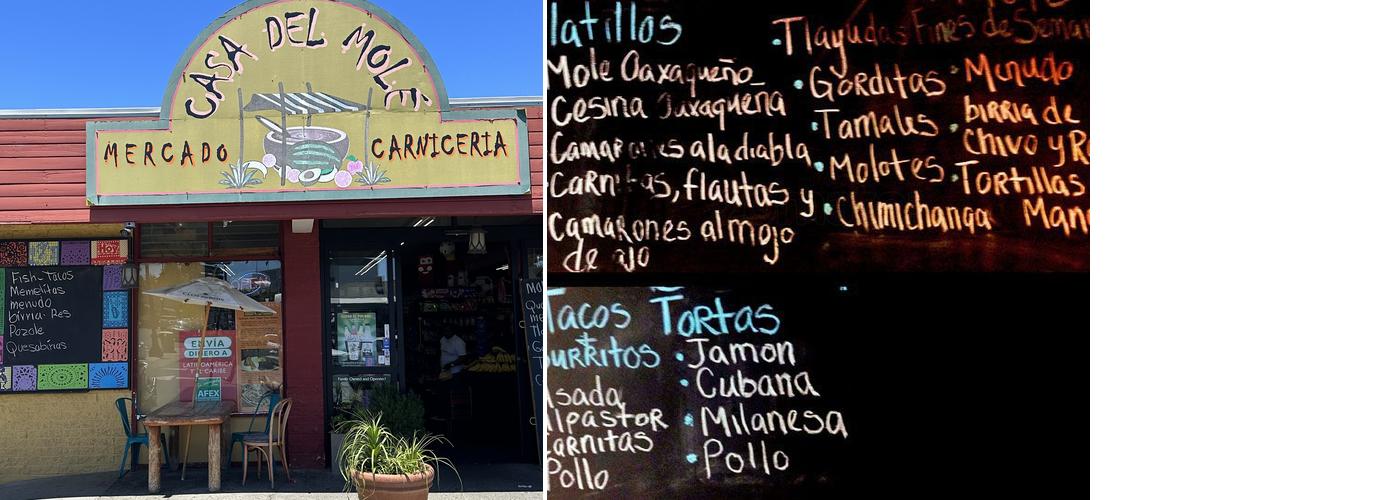 CASA DEL MOLE
MERCADO
CARNICERIA
Hoy
Fish-Tacos
Memelitas
menudo
birria-Res
Pozole
Quesabirias
ENVÍA
DINERO A
LATINOAMÉRICA
Y EL CARIBE
AFEX
Family Owned and Operated!
latillos
Mole Oaxaqueño
Cesina Oaxaqueña
Camarones ala diabla
Carnitas, flautas y
Camarones al mojo
de ajo
Tlayudas
Gorditas
Tamales
Molotes
Chimichanga
Fines de Seman
Menudo
birria de
Chivo y Re
Tortillas
Man
Tacos
burritos
Asada
Alpastor
Carnitas
Pollo
Tortas
Jamon
Cubana
Milanesa
Pollo